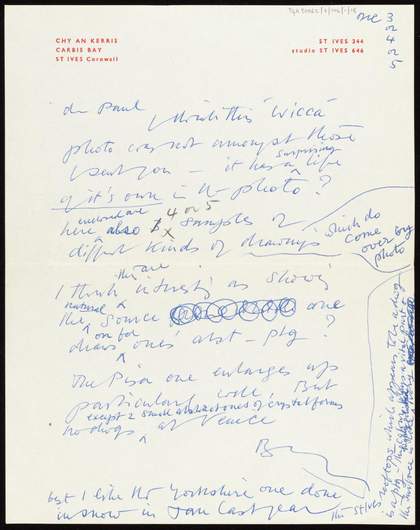 CHY AN KERRIS
CARBIS BAY
ST IVES Cornwall
ST IVES 344
studio ST IVES 646
dr Paul
I think this 'Wicca'
photo was not amongst those
I sent you – it has a surprising life
of it's own in the photo?
enclosed are 4 or 5
here also samples of
diffrnt kinds of drawings
which do
come
over by
photo
I think these are interesting as showing
the natural source one
draws on for one's abst – ptg?
The Pisa one enlarges up
particularly well. But
except 2 small abstract ones of crystal forms
no dwgs of Venice
B
best I like the Yorkshire one done
in snow in Jan last year
the St Ives rooftops which appears to be a dwg